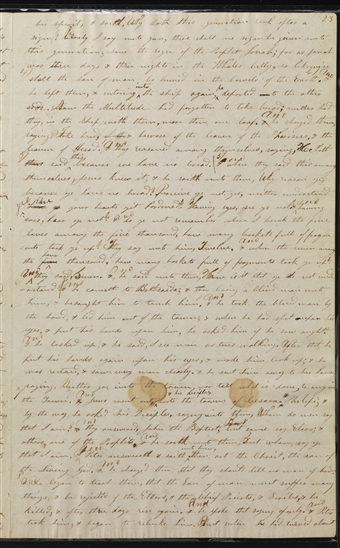 23
his spirit, & saith, Why doth this generation seek after a
sign? Verily I say unto you, there shall no sign be given unto
this generation, save the sign of the Prophet Jonah; for as Jonah
was three days & three nights in the Whales belly, so likewise
shall the Son of man be buried in the bowels of the Earth. And
he left them, & entering into the ship again, he departed to the other
side. Now the Multitude had forgotten to take bread; neither had
they in the ship with them, more than one loaf. And he charged them,
saying, Take heed, & beware of the leaven of the Pharisees, & the
leaven of Herod. & They reasoned among themselves, saying, He hath
said this, because we have no bread. & when they said this among
themselves, Jesus knew it, & he saith unto them, Why reason ye
because ye have no bread? perceive ye not yet, neither understand
are your hearts yet hardened? Having eyes, see ye not? and having
ears, hear ye not? & do ye not remember? when I brake the five
loaves among the five thousand, how many baskets full of fragments
took ye up? They say unto him, Twelve. And when the seven among
the four thousand, how many baskets full of fragments took ye up?
& they said, Seven. & he said unto them, How is it that ye do not under
stand? & he cometh to Bethsaida; & they bring a blind man unto
him, & besought him to touch him; and he took the blind man by
the hand, & led him out of the town; & when he had spit upon his
eyes, & put his hands upon him, he asked him if he saw ought.
& he looked up, & he said, I see men as trees walking. After that he
put his hands again upon his eyes, & made him look up; & he
was restored, & saw every man clearly. & he sent him away to his house
saying, Neither go into the town, nor tell it to any in
the Town. And Jesus went out, & his disciples, into the towns of Cesarea Philippi; &
by the way he asked his disciples, saying unto them, Whom do men say
that I am? & they answered, John the Baptist; but some say, Elias; &
others, one of the Prophets. & he saith unto them, But whom say ye
that I am? & Peter answereth & saith unto him, Thou art the Christ, the son of
the living God. And he charged them that they should tell no man of him;
& he began to teach them, that the Son of man must suffer many
things, & be rejected of the Elders, & the Chief Priests, & Scribes, & be
killed, & after three days rise again. And he spake that saying openly. And Peter
took him, & began to rebuke him. But when he had turned about